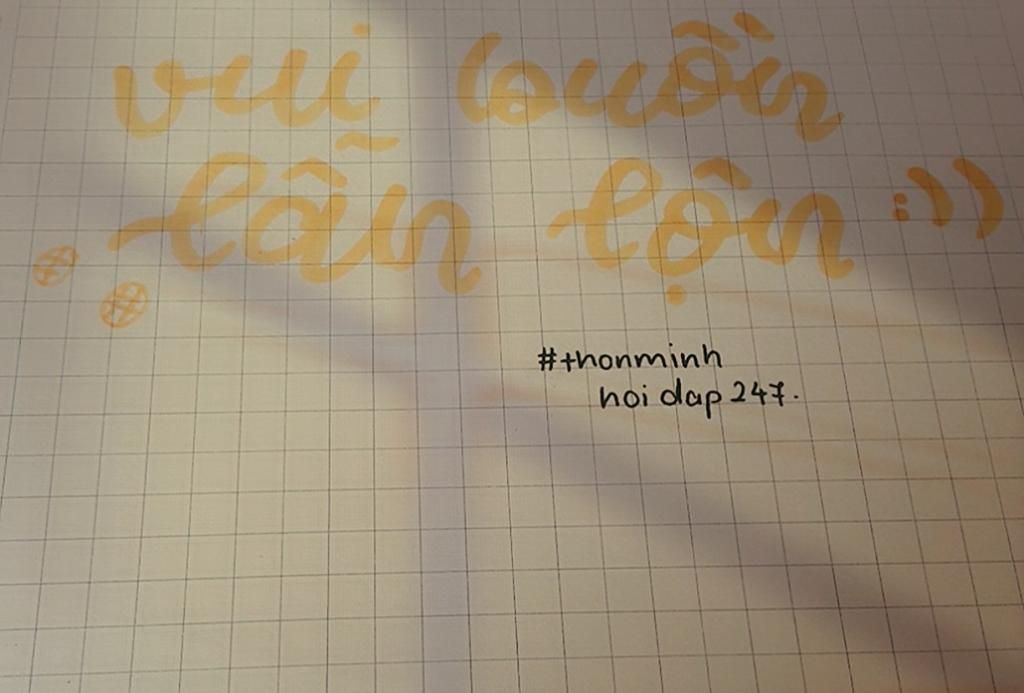 vui buồn
lẫn lộn :))
#thonminh
hoi dap 247.